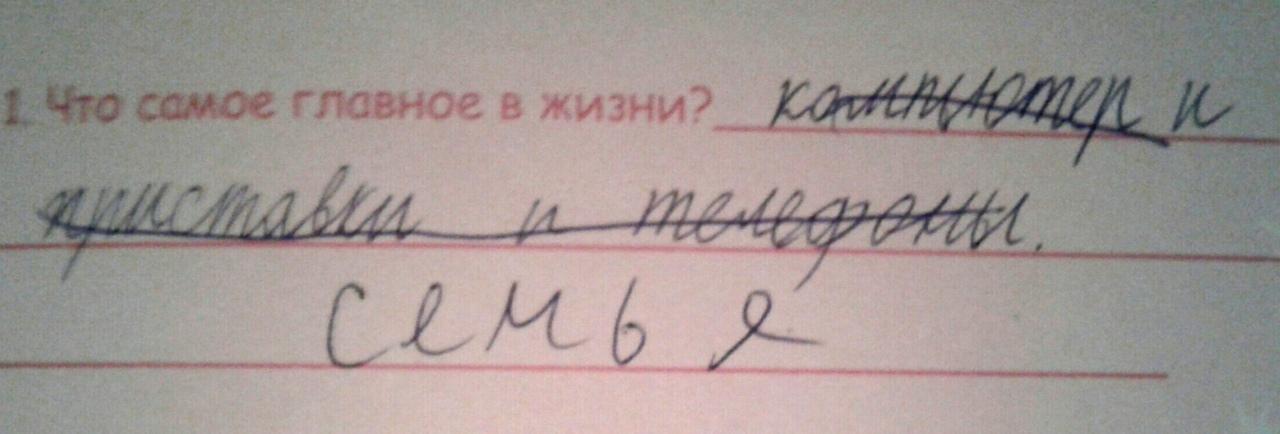 1. Что самое главное в жизни? компьютер и
приставки и телефоны.
семья